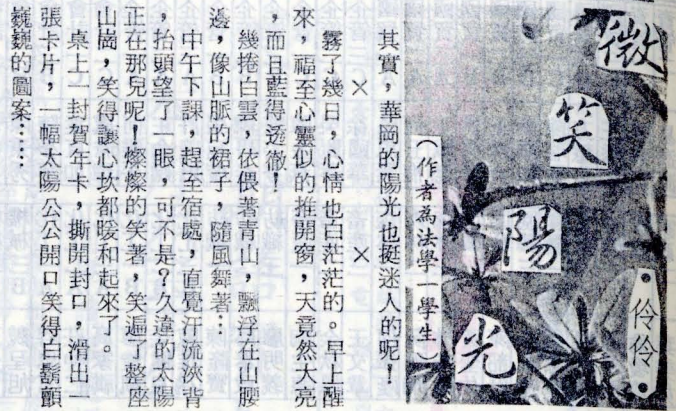 微笑陽光
伶伶
（作者為法學一學生）
其實，華岡的陽光也挺迷人的呢！
× ×
霧了幾日，心情也白茫茫的。早上醒
來，福至心靈似的推開窗，天竟然大亮
，而且藍得透徹！
幾捲白雲，依偎著青山，飄浮在山腰
邊，像山脈的裙子，隨風舞著…
中午下課，趕至宿處，直覺汗流浹背
，抬頭望了一眼，可不是？久違的太陽
正在那兒呢！燦燦的笑著，笑遍了整座
山崗，笑得讓心坎都暖和起來了。
桌上一封賀年卡，撕開封口，滑出一
張卡片，一幅太陽公公開口笑得白鬍顫
巍巍的圖案……